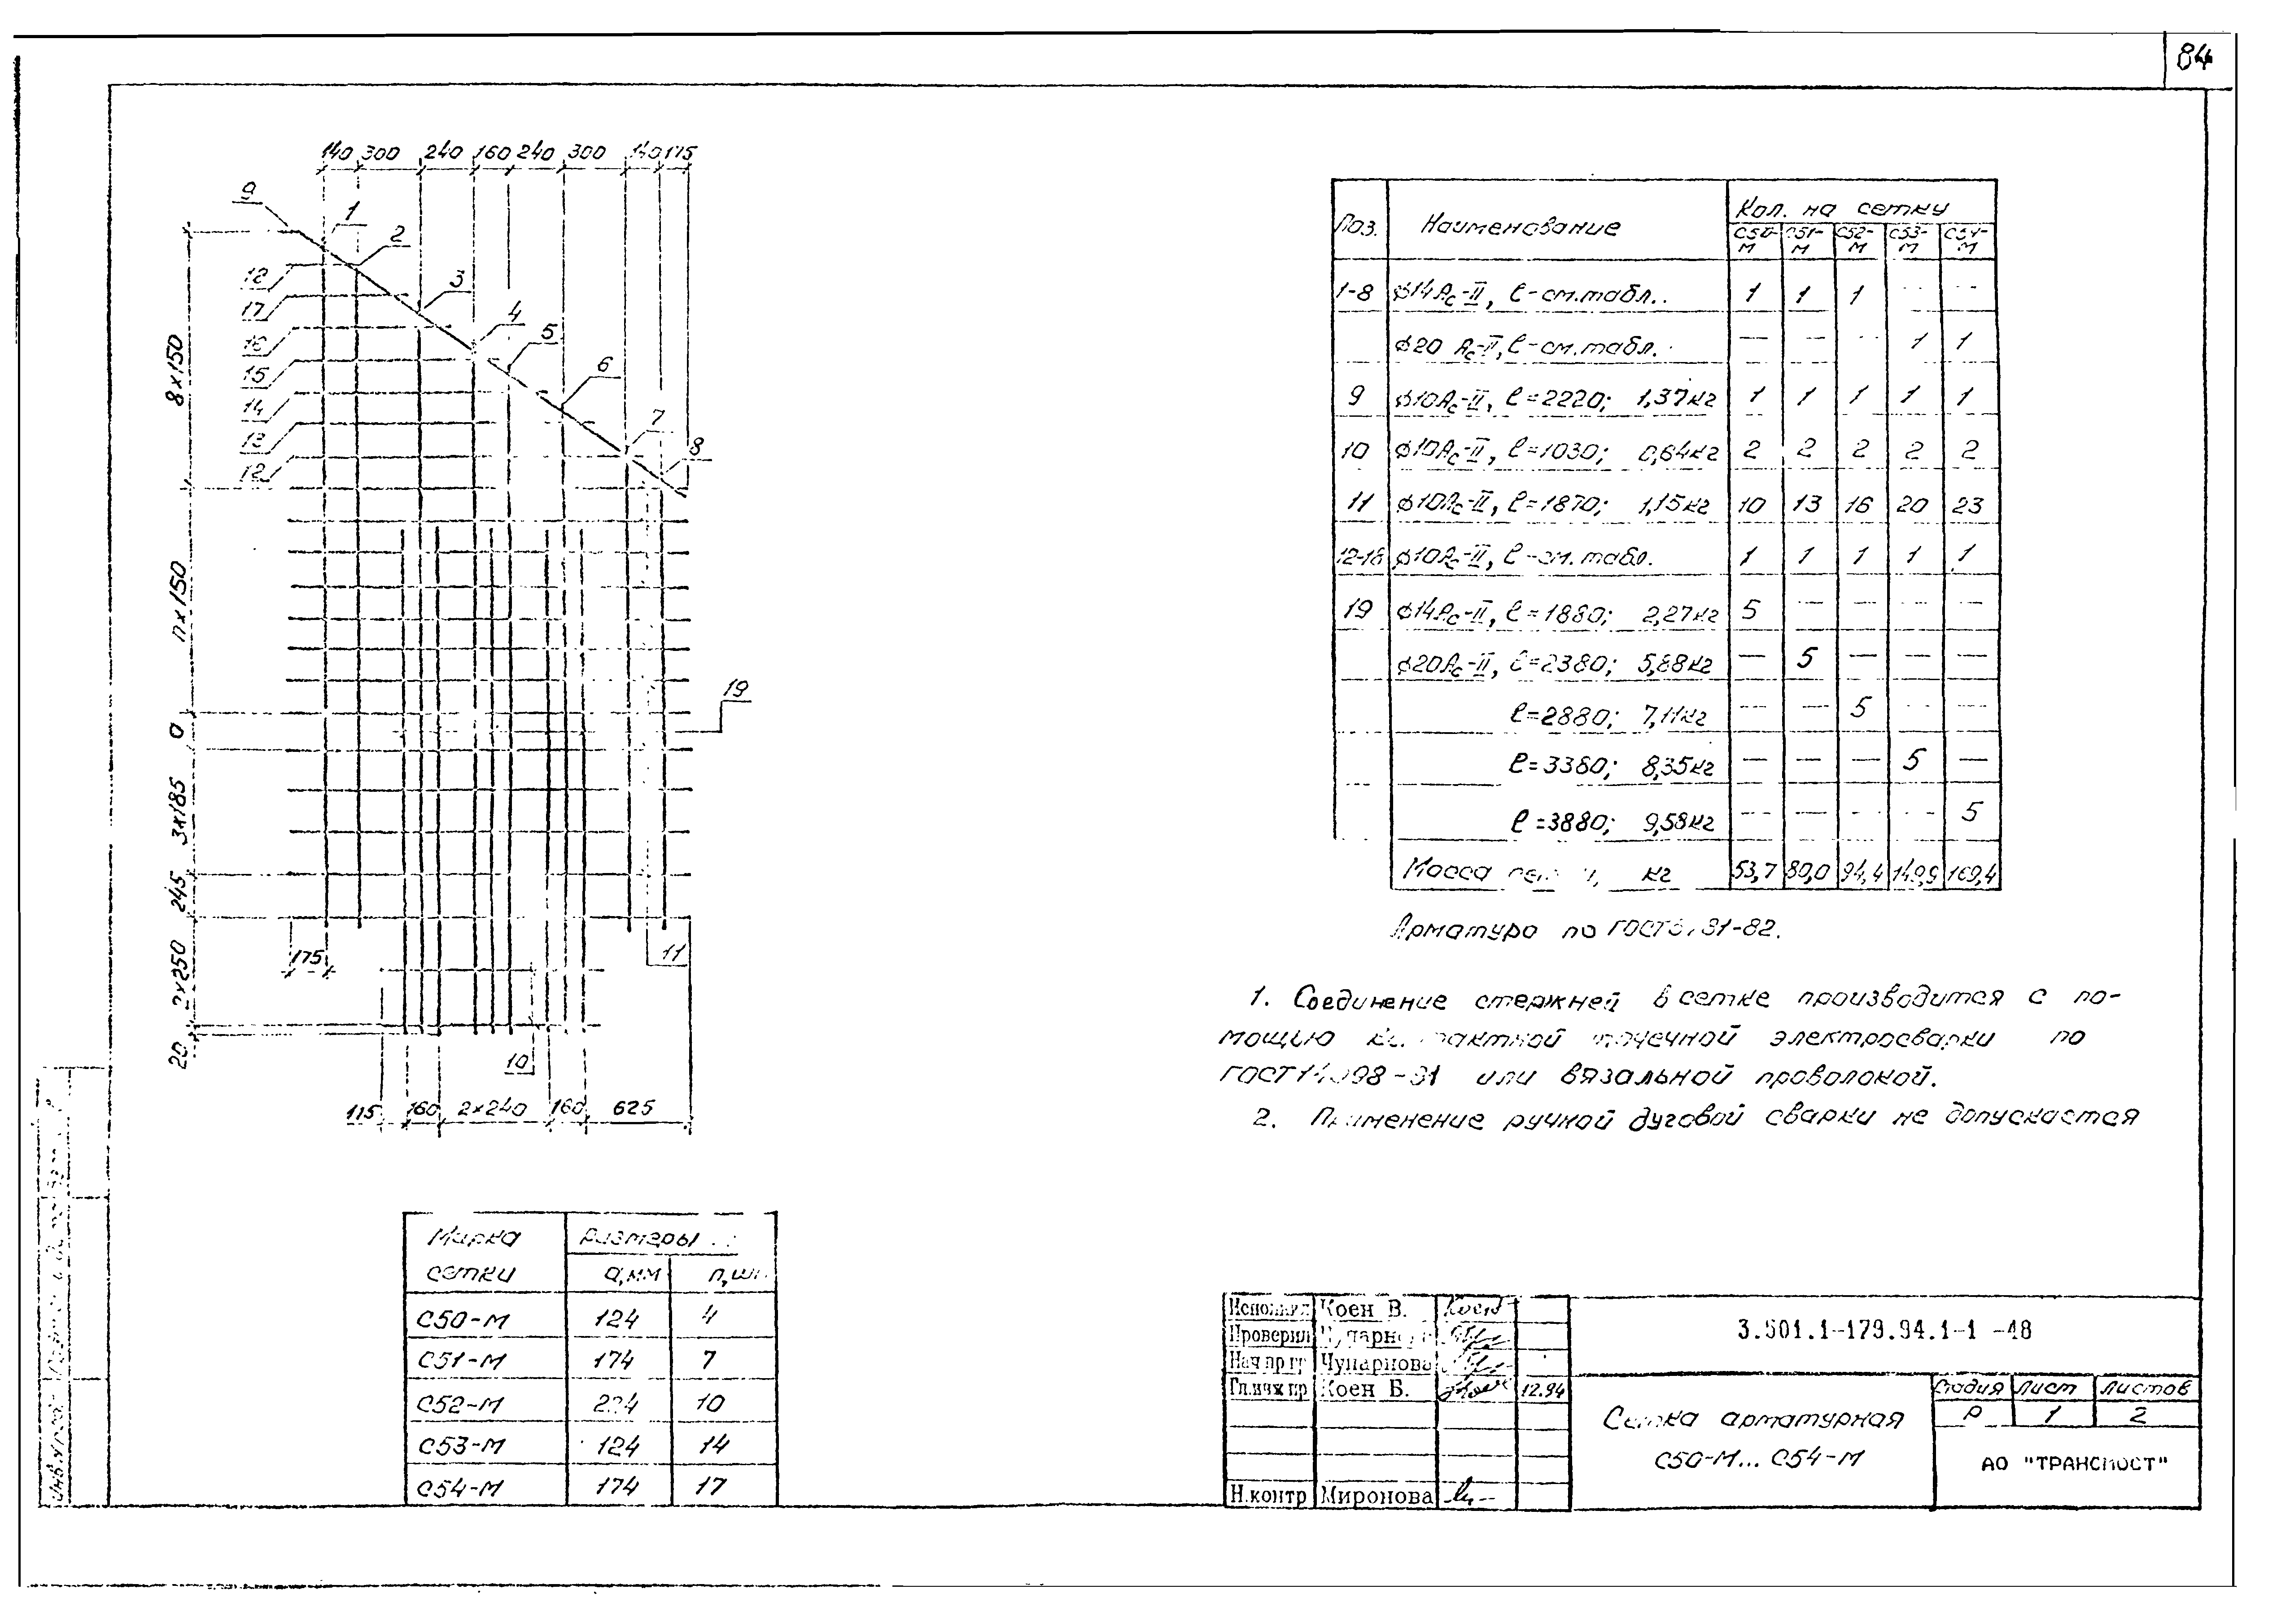 84
140 300 240 160 240 300 140 175
9
1
2
3
4
5
6
7
8
12
17
16
15
14
13
12
8×150
n×150
a
3×185
245
2×250
20
19
175
11
10
115 160 2×240 160 625
Марка Размеры
сетки a,мм n,шт.
С50-М 124 4
С51-М 174 7
С52-М 224 10
С53-М 124 14
С54-М 174 17
Поз. Наименование Кол. на сетку
С50-М С51-М С52-М С53-М С54-М
1-8 ϕ14Ас-II, ℓ-см.табл. 1 1 1 - -
ϕ20 Ас-II, ℓ-см.табл. - - - 1 1
9 ϕ10Ас-II, ℓ=2220; 1,37кг 1 1 1 1 1
10 ϕ10Ас-II, ℓ=1030; 0,64кг 2 2 2 2 2
11 ϕ10Ас-II, ℓ=1870; 1,15кг 10 13 16 20 23
12-18 ϕ10Ас-II, ℓ-см.табл. 1 1 1 1 1
19 ϕ14Ас-II, ℓ=1880; 2,27кг 5 - - - -
ϕ20Ас-II, ℓ=2380; 5,88кг - 5 - - -
ℓ=2880; 7,11кг - - 5 - -
ℓ=3380; 8,35кг - - - 5 -
ℓ=3880; 9,58кг - - - - 5
Масса кг 53,7 80,0 94,4 149,9 169,4
Арматура по ГОСТ 81-82.
1. Соединение стержней в сетке производится с по-
мощью контактной точечной электросварки по
ГОСТ14098-91 или вязальной проволокой.
2. Применение ручной дуговой сварки не допускается
Исполнил Коен В.
Проверил
Нач пр гр Чупарнова
Гл.инж пр Коен Б. 12.94
Н.контр Миронова
3.501.1-179.94.1-1 -48
Сетка арматурная
С50-М... С54-М
Стадия Лист Листов
Р 1 2
АО "ТРАНСМОСТ"